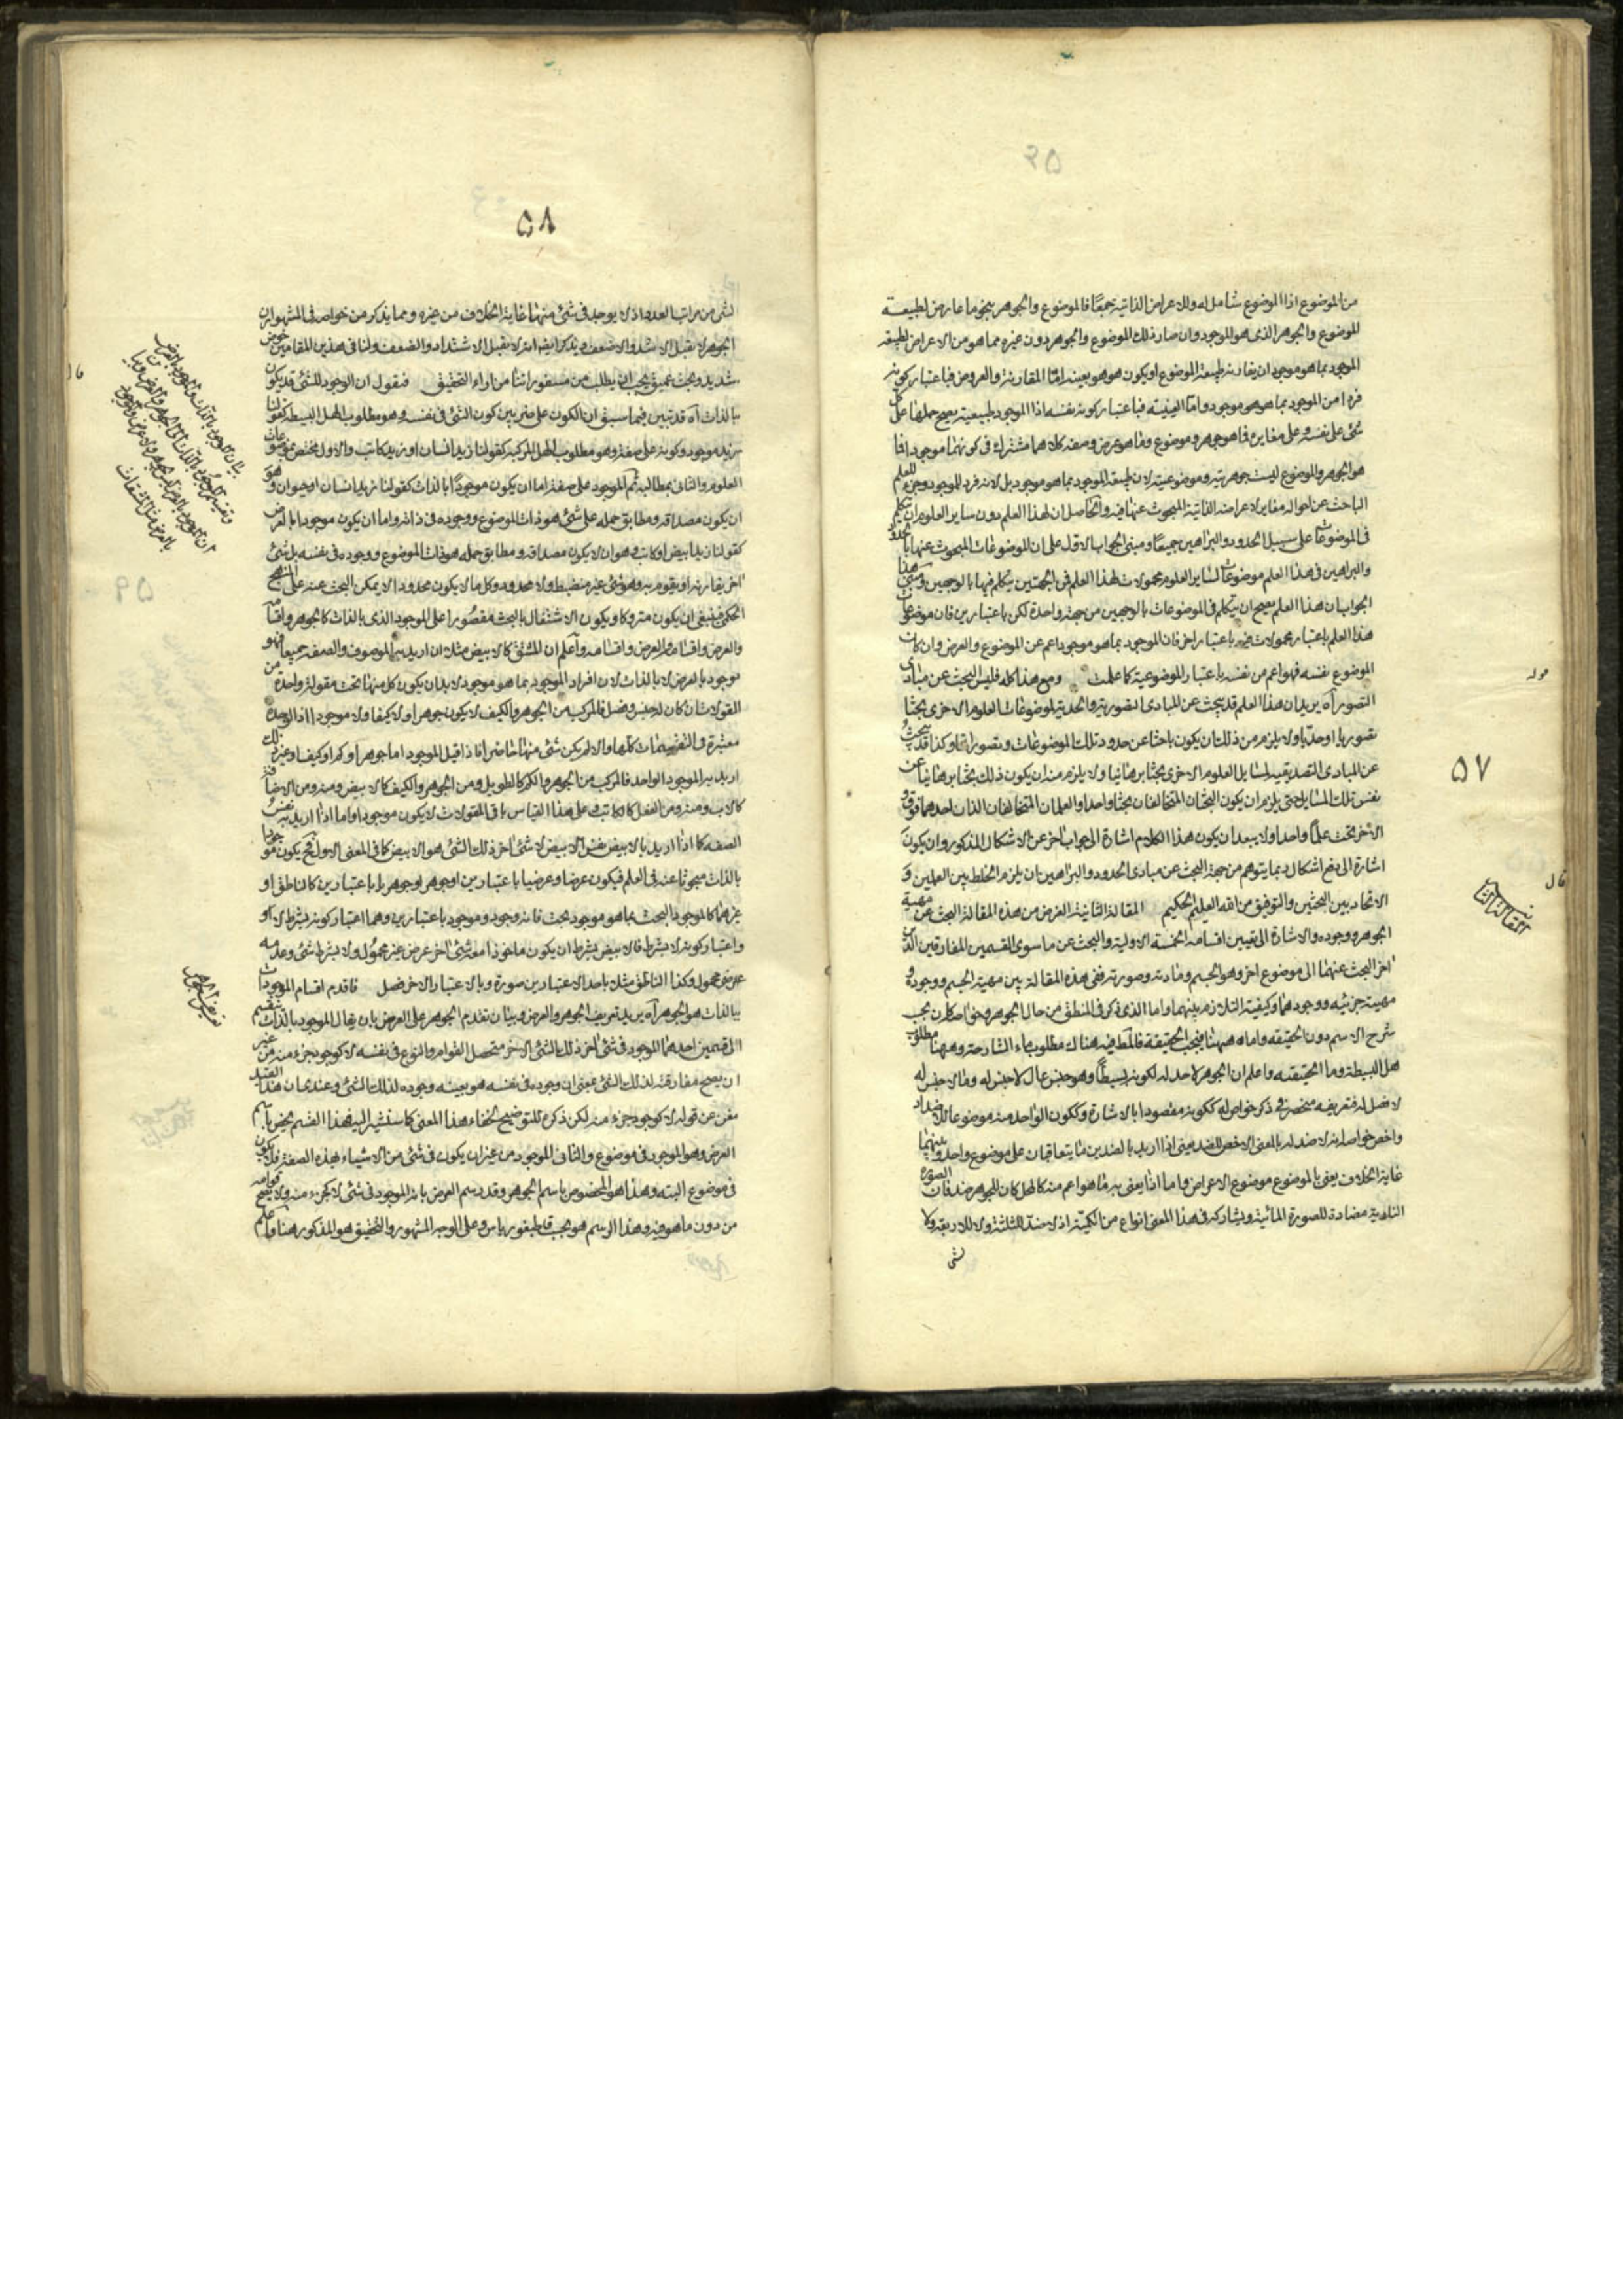 من الموضوع اذا الموضوع شامل له وللاعراض الذاتية جميعًا فالموضوع والجوهر بنحو ما عارض لطبيعة
الموضوع والجوهر الذى هو الموجود وان صار ذلك الموضوع والجوهر دون غيره مما هو من الاعراض لطبيعة
الموجود بما هو موجود ان يقارنه طبيعة الموضوع او يكون هو هو بعينه امّا المقارنة والعروض فباعتبار كونه
فردا من الموجود بما هو هو موجود وامّا العينية فباعتبار كونه نفسه اذا الموجود طبيعية يصح حملها على كل
شئ على نفسه وعلى مغايره فما هو جوهر وموضوع وما هو عرض وصفه كلاهما مشترك فى كونهما موجودا فما
هو الجوهر والموضوع ليست جوهريته وموضوعيته لان طبيعة الموجود بما هو موجود بل لانه فرد للموجود وجزء للعلم
الباحث عن احواله مغاير لاعراضه الذاتية المبحوث عنها فيه والحاصل ان لهذا العلم دون ساير العلوم ان يتكلم
فى الموضوعات على سبيل الحدود والبراهين جميعًا ومبنى الجواب الاول على ان الموضوعات المبحوث عنها بالحدود
والبراهين فى هذا العلم موضوعات لساير العلوم محمولات لهذا العلم فى الجهتين يتكلم فيها بالوجهين ومبنى هذا
الجواب ان هذا العلم يصح ان يتكلم فى الموضوعات بالوجهين من جهة واحدة لكن باعتبارين فان موضوعات
هذا العلم باعتبار محمولات فيه باعتبار اخر فان الموجود بما هو موجود اعم عن الموضوع والعرض وان كان
الموضوع نفسه فهو اعم من نفسه باعتبار الموضوعية كما علمت ومع هذا كله فليس البحث عن مبادى
التصور اه يريد ان هذا العلم قد يبحث عن المبادى التصورية والحدية لموضوعات العلوم الاخرى بحثا
تصوريا او حدّيا ولا يلزم من ذلك ان يكون باحثا عن حدود تلك الموضوعات وتصوراتها وكذا قد يبحث
عن المبادى التصديقية لمسايل العلوم الاخرى بحثا برهانيا ولا يلزم منه ان يكون ذلك بحثا برهانيا عن
نفس تلك المسايل حتى يلزم ان يكون البحثان المتخالفان بحثا واحدا والعلمان المتخالفان اللذان احدهما فوق و
الاخر تحت علمًا واحدا ولا يبعد ان يكون هذا الكلام اشارة الى جواب اخر عن الاشكال المذكور وان يكون
اشارة الى دفع اشكال ربما يتوهم من جهة البحث عن مبادى الحدود والبراهين ان يلزم الخلط بين العلمين و
الاتحاد بين البحثين والتوفيق من الله العليم الحكيم المقالة الثانية الغرض من هذه المقالة البحث عن مهية
الجوهر ووجوده والاشارة الى تعيين اقسامه الخمسة الاولية والبحث عن ما سوى القسمين المفارقين اللذين
اخر البحث عنهما الى موضوع اخر وهو الجسم ومادته وصورته ففى هذه المقالة بين مهية الجسم ووجوده و
مهية جزئيه ووجودهما وكيفية التلازم بينهما واما الذى ذكر فى المنطق من حال الجوهر وخواصه كان بحسب
شرح الاسم دون الحقيقه واما ههنا فبحسب الحقيقة فالمط فيه هناك مطلوب ماء الشارحة وههنا مطلوب
هل البسيطة وما الحقيقيه واعلم ان الجوهر لا حد له لكونه بسيطًا وهو جنس عال لا جنس له وما لا جنس له
لا فصل له فتعريفه منحصر فى ذكر خواص له ككونه مقصودا بالاشارة وككون الواحد منه موضوعا للاضداد
واخص خواصه انه لا ضد له بالمعنى الاخص للضد يعنى اذا اريد بالضدين ما يتعاقبان على موضوع واحد وبينهما
غاية الخلاف يعنى بالموضوع موضوع الاعراض واما اذا يعنى به ما هو اعم منه كالمحل كان للجوهر ضد فان الصورة
النارية مضادة للصورة المائية ويشاركه فى هذا المعنى انواع من الكمية اذ لا ضد للثلثة ولا للاربعة ولا
لشئ
قوله
٥٧
قال
المقالة الثانية
٥٨
لشئ من مراتب العدد اذ لا يوجد فى شئ منها غاية الخلاف من غيره ومما يذكر من خواصه فى المشهور ان
الجوهر لا يقبل الاشد والاضعف ويذكر ايضا انه لا يقبل الاشتداد والضعف ولنا فى هذين المقامين خوض
شديد وبحث عميق يجب ان يطلب من مسفوراتنا من اراد التحقيق فنقول ان الوجود للشئ قد يكون
بالذات اه قد تبين فيما سبق ان الكون على ضربين كون الشئ فى نفسه وهو مطلوب الهل البسيطة كقولنا
زيد موجود وكونه على صفة وهو مطلوب الهل المركبة كقولنا زيد انسان او زيد كاتب والاول مختص بموضوعات
العلوم والثانى بمطالبه ثم الموجود على صفة اما ان يكون موجودًا بالذات كقولنا زيد انسان او حيوان وهو
ان يكون مصداقه ومطابق حمله على شئ هو ذات الموضوع ووجوده فى ذاته واما ان يكون موجودا بالعرض
كقولنا زيد ابيض او كاتب وهو ان لا يكون مصداقه ومطابق حمله هو ذات الموضوع ووجوده فى نفسه بل شئ
اخر يقارنه او يقوم به وهو شئ غير منضبط ولا محدود وكل ما لا يكون محدودا لا يمكن البحث عنه على المنهج
الحكمى فينبغى ان يكون متروكا ويكون الاشتغال بالبحث مقصورا على الموجود الذى بالذات كالجوهر واقسامه
والعرض واقسامه واعلم ان المشتق كالابيض مثلا ان اريد به الموصوف والصفه جميعا فهو
موجود بالعرض لا بالذات لان افراد الموجود بما هو موجود لا بد ان يكون كل منها تحت مقولة واحدة من
المقولات ان كان له جنس وفصل فالمركب من الجوهر والكيف لا يكون جوهرا ولا كيفا ولا موجودا اذ الوحدة
معتبرة فى التقسيمات كلها والا لم يكن شئ منها حاصرا فاذا قيل الموجود اما جوهر او كم او كيف او غير ذلك
اريد به الموجود الواحد فالمركب من الجوهر والكم كالطويل ومن الجوهر والكيف كالابيض ومنه ومن الاضافة
كالاب ومنه ومن الفعل كالكاتب وعلى هذا القياس باقى المقولات لا يكون موجودا واما اذا اريد به نفس
الصفه كما اذا اريد بالابيض نفس الابيض لا شئ اخر ذلك الشئ هو الابيض كما فى المعنى الاول فح يكون موجودا
بالذات مبحوثا عنه فى العلم فيكون عرضا وعرضيا باعتبارين او جوهر او جوهريا باعتبارين كالناطق او
غيرهما كالموجود البحت بما هو موجود بحت فانه وجود وموجود باعتبارين وهما اعتبار كونه بشرط لا او
واعتبار كونه لا بشرط فالابيض بشرط ان يكون ماخوذا معه شئ اخر عرض غير محمول ولا بشرط شئ وعدمه
عرضى محمول وكذا الناطق مثلا باحد الاعتبارين صورة وبالاعتبار الاخر فصل فاقدم اقسام الموجودات
بالذات هو الجوهر اه يريد تعريف الجوهر والعرض وبيان تقدم الجوهر على العرض بان يقال الموجود بالذات ينقسم
الى قسمين احدهما الموجود فى شئ اخر ذلك الشئ الاخر متحصل القوام والنوع فى نفسه لا كوجود جزء منه من غير
ان يصح مفارقته لذلك الشئ بمعنى ان وجوده فى نفسه هو بعينه وجوده لذلك الشئ وعندى ان هذا القيد
مغن عن قوله لا كوجود جزء منه لكن ذكره للتوضيح لخفاء هذا المعنى كما سنشير اليه فهذا القسم يخص باسم
العرض وهو الموجود فى موضوع والثانى الموجود من غير ان يكون فى شئ من الاشياء بهذه الصفة فلا يكون
فى موضوع البته وهذا هو المخصوص باسم الجوهر وقد رسم العرض بانه الموجود فى شئ لا كجزء منه ولا يصح قوامه
من دون ما هو فيه وهذا الرسم هو بحسب قاطيغورياس وعلى الوجه المشهور والتحقيق هو المذكور هنا واعلم
قال
تعريف الجوهر